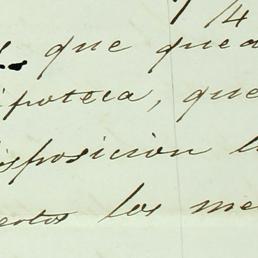 1/4
que queda
ipoteca, que
isposicion la
estos los me